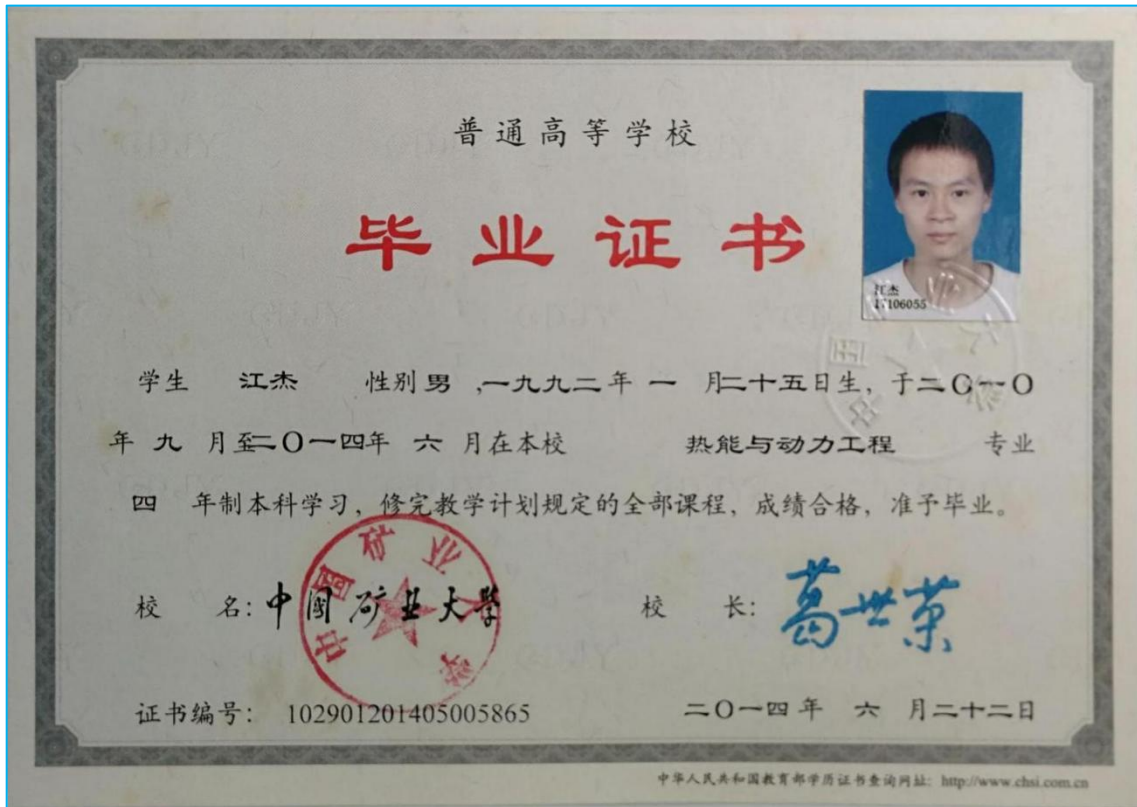 普通高等学校
毕业证书
江杰
学生 江杰 性别 男 ,一九九二年 一 月二十五日生, 于二〇一〇
年 九 月至二〇一四年 六 月在本校 热能与动力工程 专业
四 年制本科学习, 修完教学计划规定的全部课程, 成绩合格, 准予毕业。
校 名: 中國矿业大学
校 长: 葛世荣
中国矿业大学
证书编号: 102901201405005865
二〇一四年 六 月二十二日
中华人民共和国教育部学历证书查询网址: http://www.chsi.com.cn